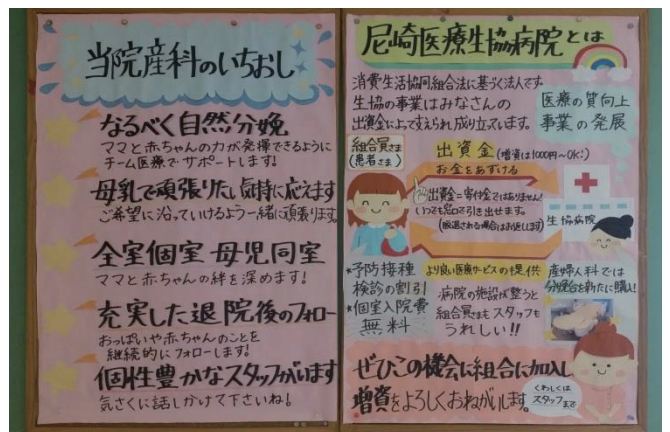 当院産科のいちおし
なるべく自然分娩
ママと赤ちゃんの力が発揮できるように
チーム医療でサポートします!
母乳で頑張りたい気持に応えます
ご希望に沿っていけるよう一緒に頑張ります。
全室個室 母児同室
ママと赤ちゃんの絆を深めます!
充実した退院後のフォロー
おっぱいや赤ちゃんのことを
継続的にフォローします!
個性豊かなスタッフがいます
気さくに話しかけて下さいね!
尼崎医療生協病院とは
消費生活協同組合法に基づく法人です。
生協の事業はみなさんの
出資金によって支えられ成り立っています。
医療の質向上
事業の発展
組合員さま
(患者さま)
出資金(増資は1000円〜OK!)
お金をあずける
出資金=寄付金ではありません!
いつでも窓口で引き出せます。
(脱退される場合はお返しします)
生協病院
*予防接種
検診の割引
*個室入院費
無料
より良い医療サービスの提供
病院の施設が整うと
組合員さまもスタッフも
うれしい!!
産婦人科では
分娩台を新たに購入!
ぜひこの機会に組合に加入、
増資をよろしくおねがいします。
くわしくは
スタッフまで